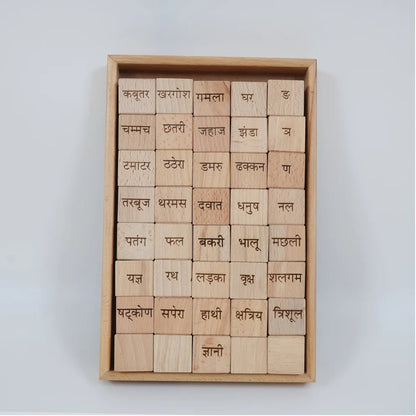 कबूतर खरगोश गमला घर ङ
चम्मच छतरी जहाज झंडा ञ
टमाटर ठठेरा डमरु ढक्कन ण
तरबूज थरमस दवात धनुष नल
पतंग फल बकरी भालू मछली
यज्ञ रथ लड़का वृक्ष शलगम
षट्कोण सपेरा हाथी क्षत्रिय त्रिशूल
ज्ञानी